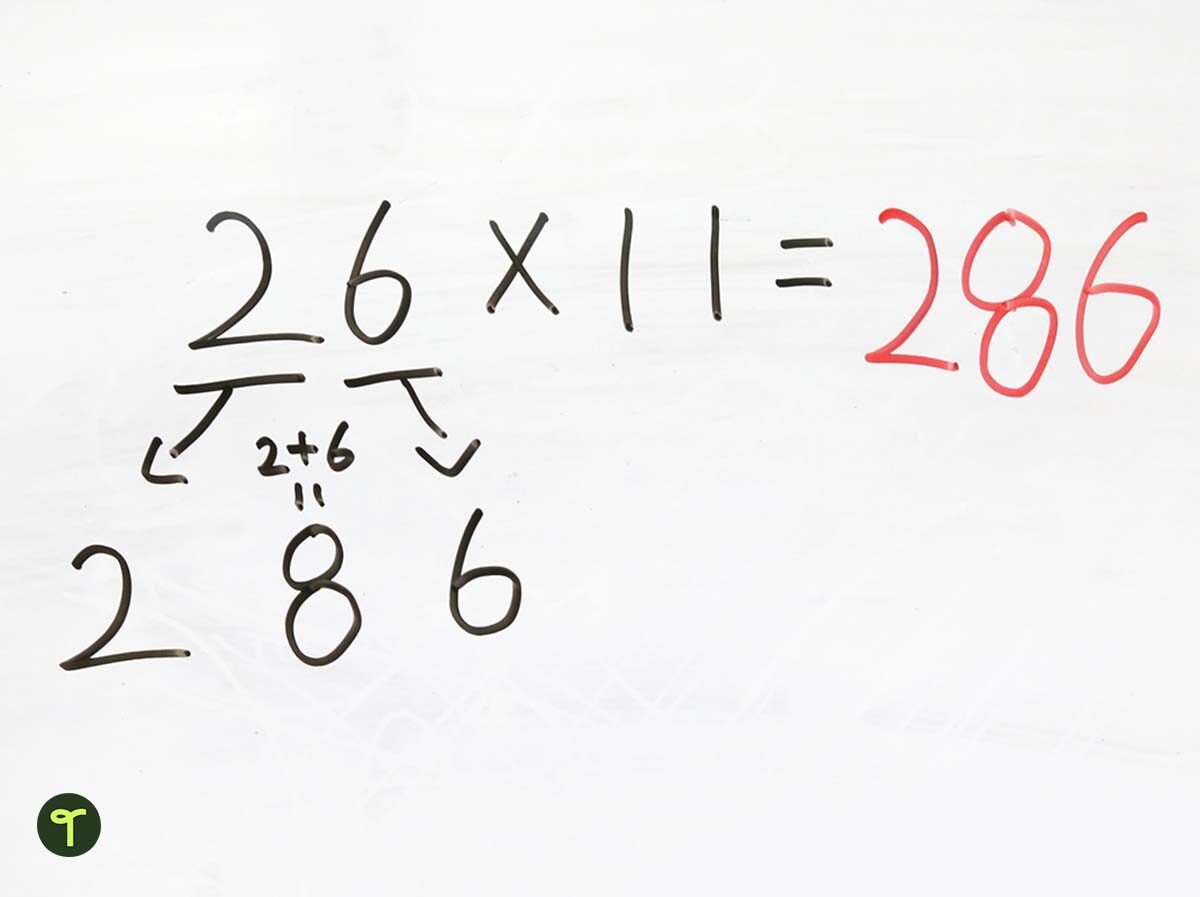 26 × 11 = 286
2+6
=
2 8 6